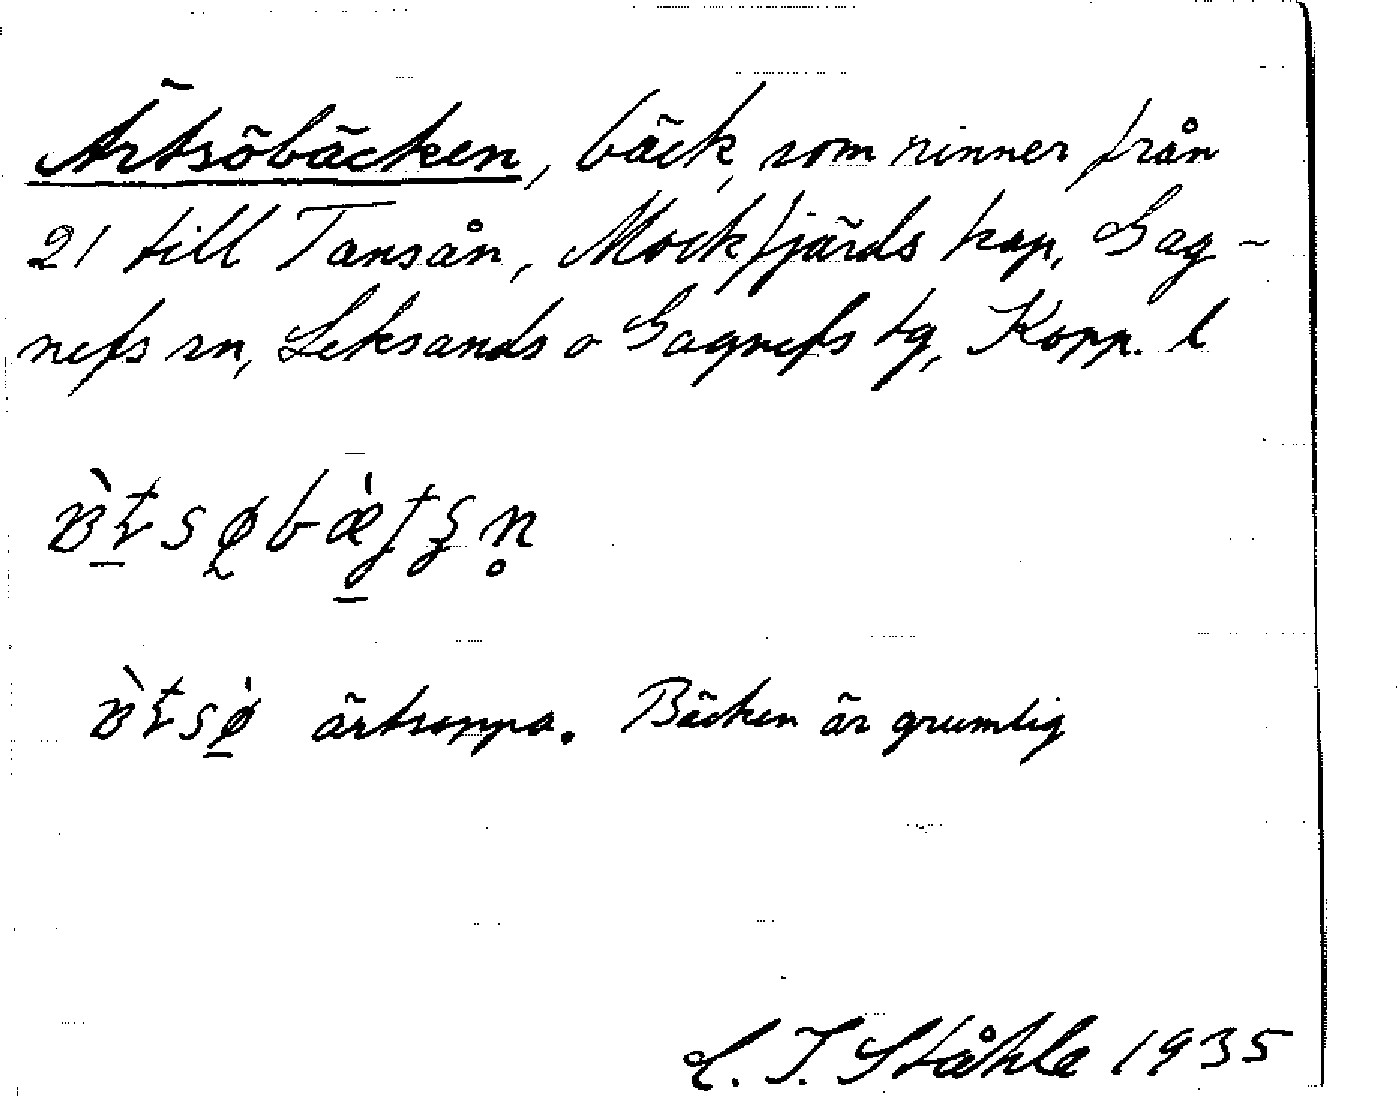 Ärtsöbäcken, bäck, som rinner från
21 till Tansån, Mockfjärds kap, Gag-
nefs sn, Leksands o Gagnefs tg, Kopp. l
ärtsoppa. Bäcken är grumlig
C. I. Ståhle 1935